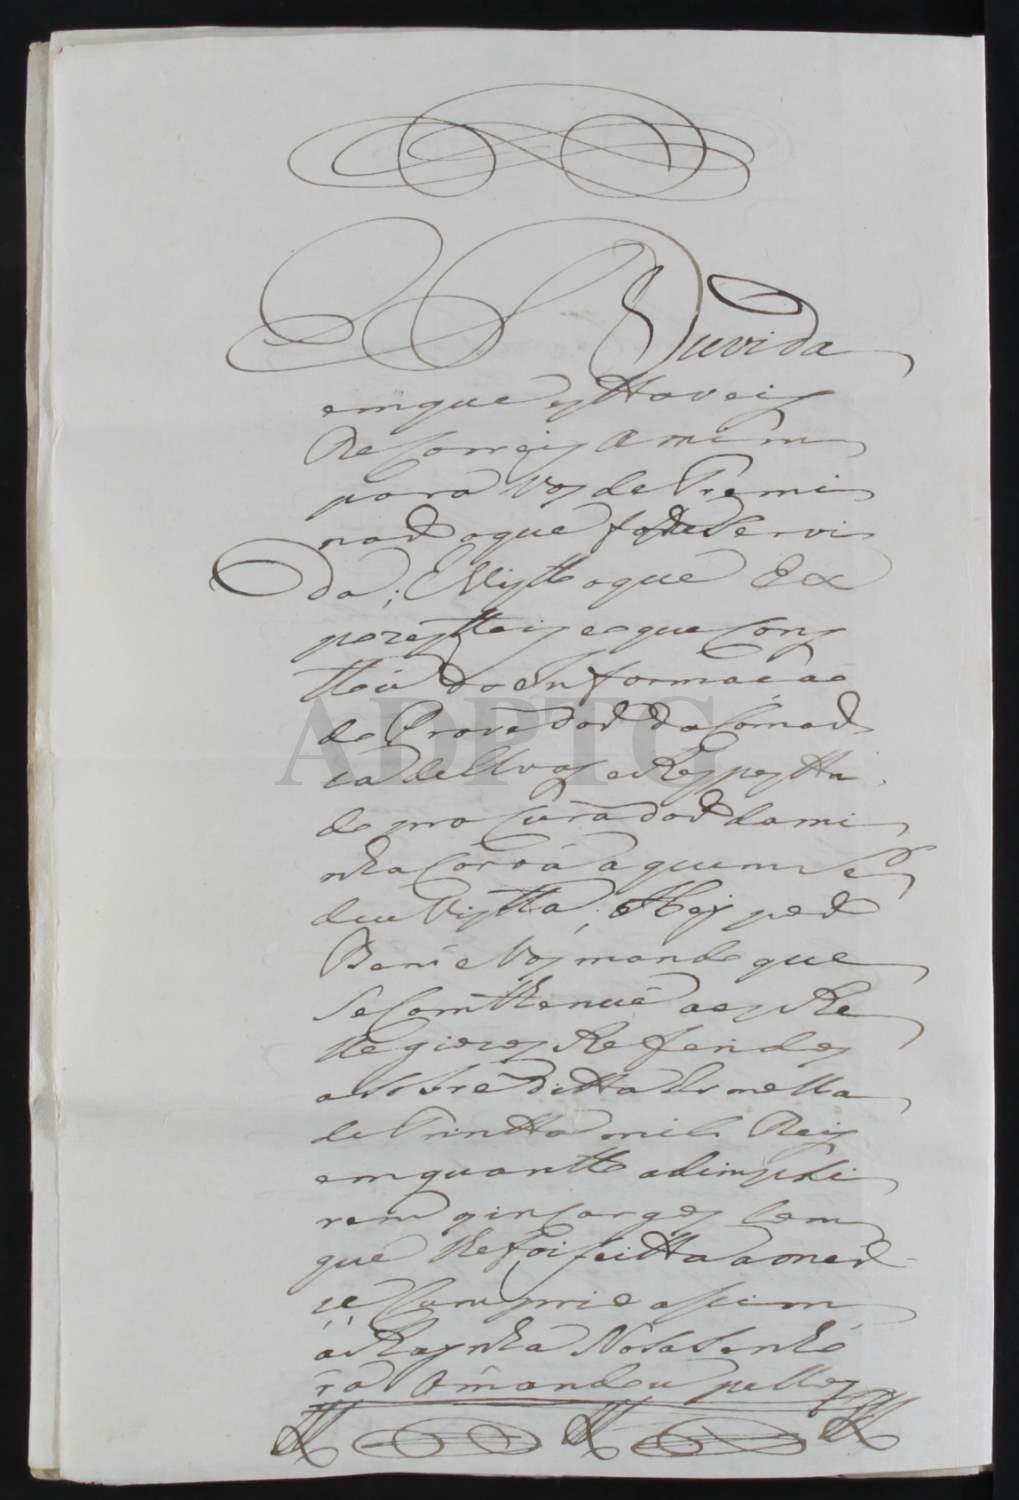 Duvida
emque esttaveis
Recorreis a mim
para vos detremi
nar oque fosse Servi
da; E visto oque Ex
pozestteis e o que Cons
ttou do enformação
do Provedor da Comar
ca de e Resposta
do procurador da mi
nha Coroa a quem se
deu vistta; Hey por
Bem e vos mando que
se Comthenue aos Re
llegiozos Referidos
a sobre ditta Esmolla
de Trintta mil Reis
emquantto adimpli
rem os incargos Com
que lhe foi feitta a mer
ce Cumprio assim
a Raynha Nosa Senho
ra o mandou pellos
ADPTG